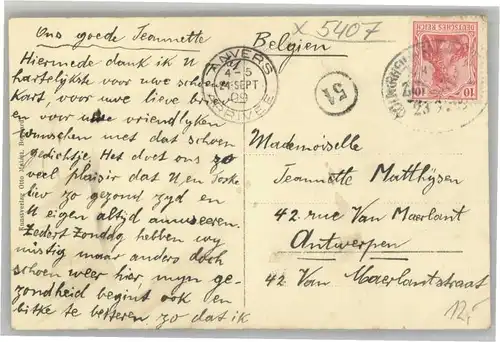 x 5407
Ons goede Jeannette
Belgien
Hiermede dank ik U
hartelijkste voor uwe schoone
Kaart, voor uwe lieve brief
en voor uwe vriendlyken
wenschen met dat schoen
gedichtje. Het doet ons zo
veel plaisir dat U, en Toske
liev zo gezond zyd en
U eigen altyd amuseeren.
Zedert Zondag hebben wy
mistig maar anders doch
schoen weer hier myn ge-
zondheid begint ook en
bitke te beteren zo dat ik
ANVERS
4-5
24 SEPT
09
ARRIVÉE
51
DEUTSCHES REICH
10
10
Mademoiselle
Jeannette Matthÿsen
42. rue Van Maerlant
Antwerpen
42 Van Maerlantstraat
12,-